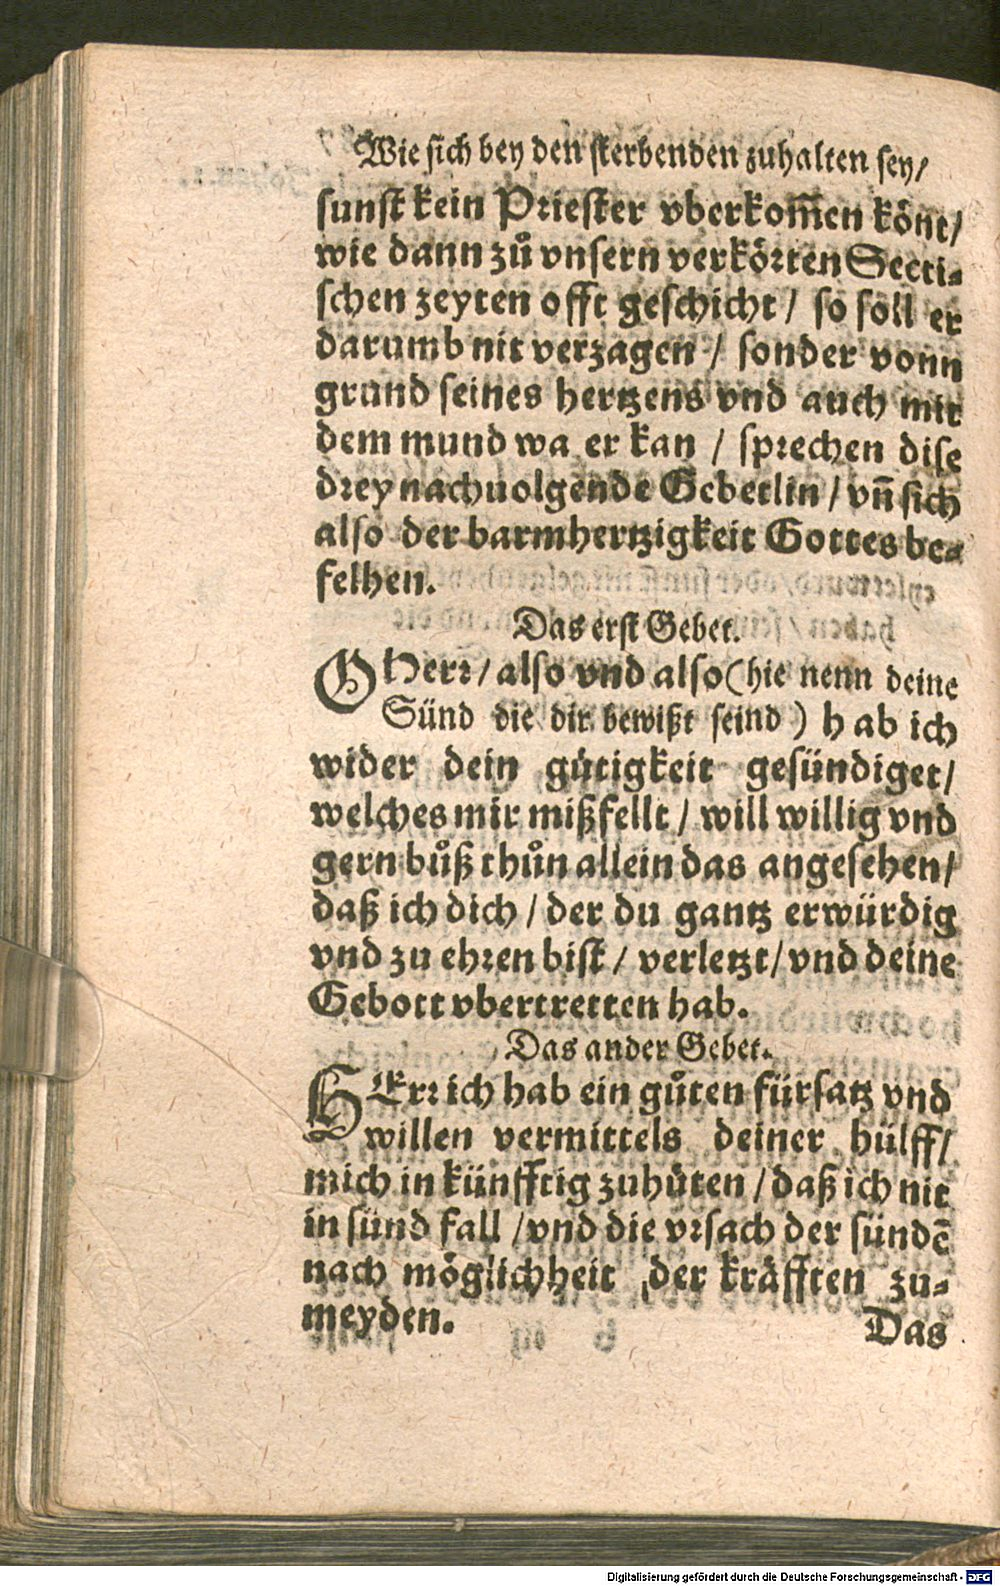 Wie sich bey den sterbenden zuhalten sey/
sunst kein Priester vberkom̃en könt/
wie dann zů vnsern verkörten Secti-
schen zeyten offt geschicht / so soll er
darumb nit verzagen / sonder vonn
grund seines hertzens vnd auch mit
dem mund wa er kan / sprechen dise
drey nachuolgende Gebetlin / vñ sich
also der barmhertzigkeit Gottes be-
felhen.
Das erst Gebet.
O Herr / also vnd also (hie nenn deine
Sünd die dir bewißt seind) hab ich
wider dein gůtigkeit gesündiget/
welches mir mißfellt / will willig vnd
gern bůß thůn allein das angesehen/
daß ich dich / der du gantz erwürdig
vnd zu ehren bist / verletzt / vnd deine
Gebott vbertretten hab.
Das ander Gebet.
HErr ich hab ein gůten fürsatz vnd
willen vermittels deiner hülff/
mich in künfftig zuhůten / daß ich nit
in sünd fall / vnd die vrsach der sündē
nach möglichheit der kräfften zu-
meyden.
Das
Digitalisierung gefördert durch die Deutsche Forschungsgemeinschaft - DFG